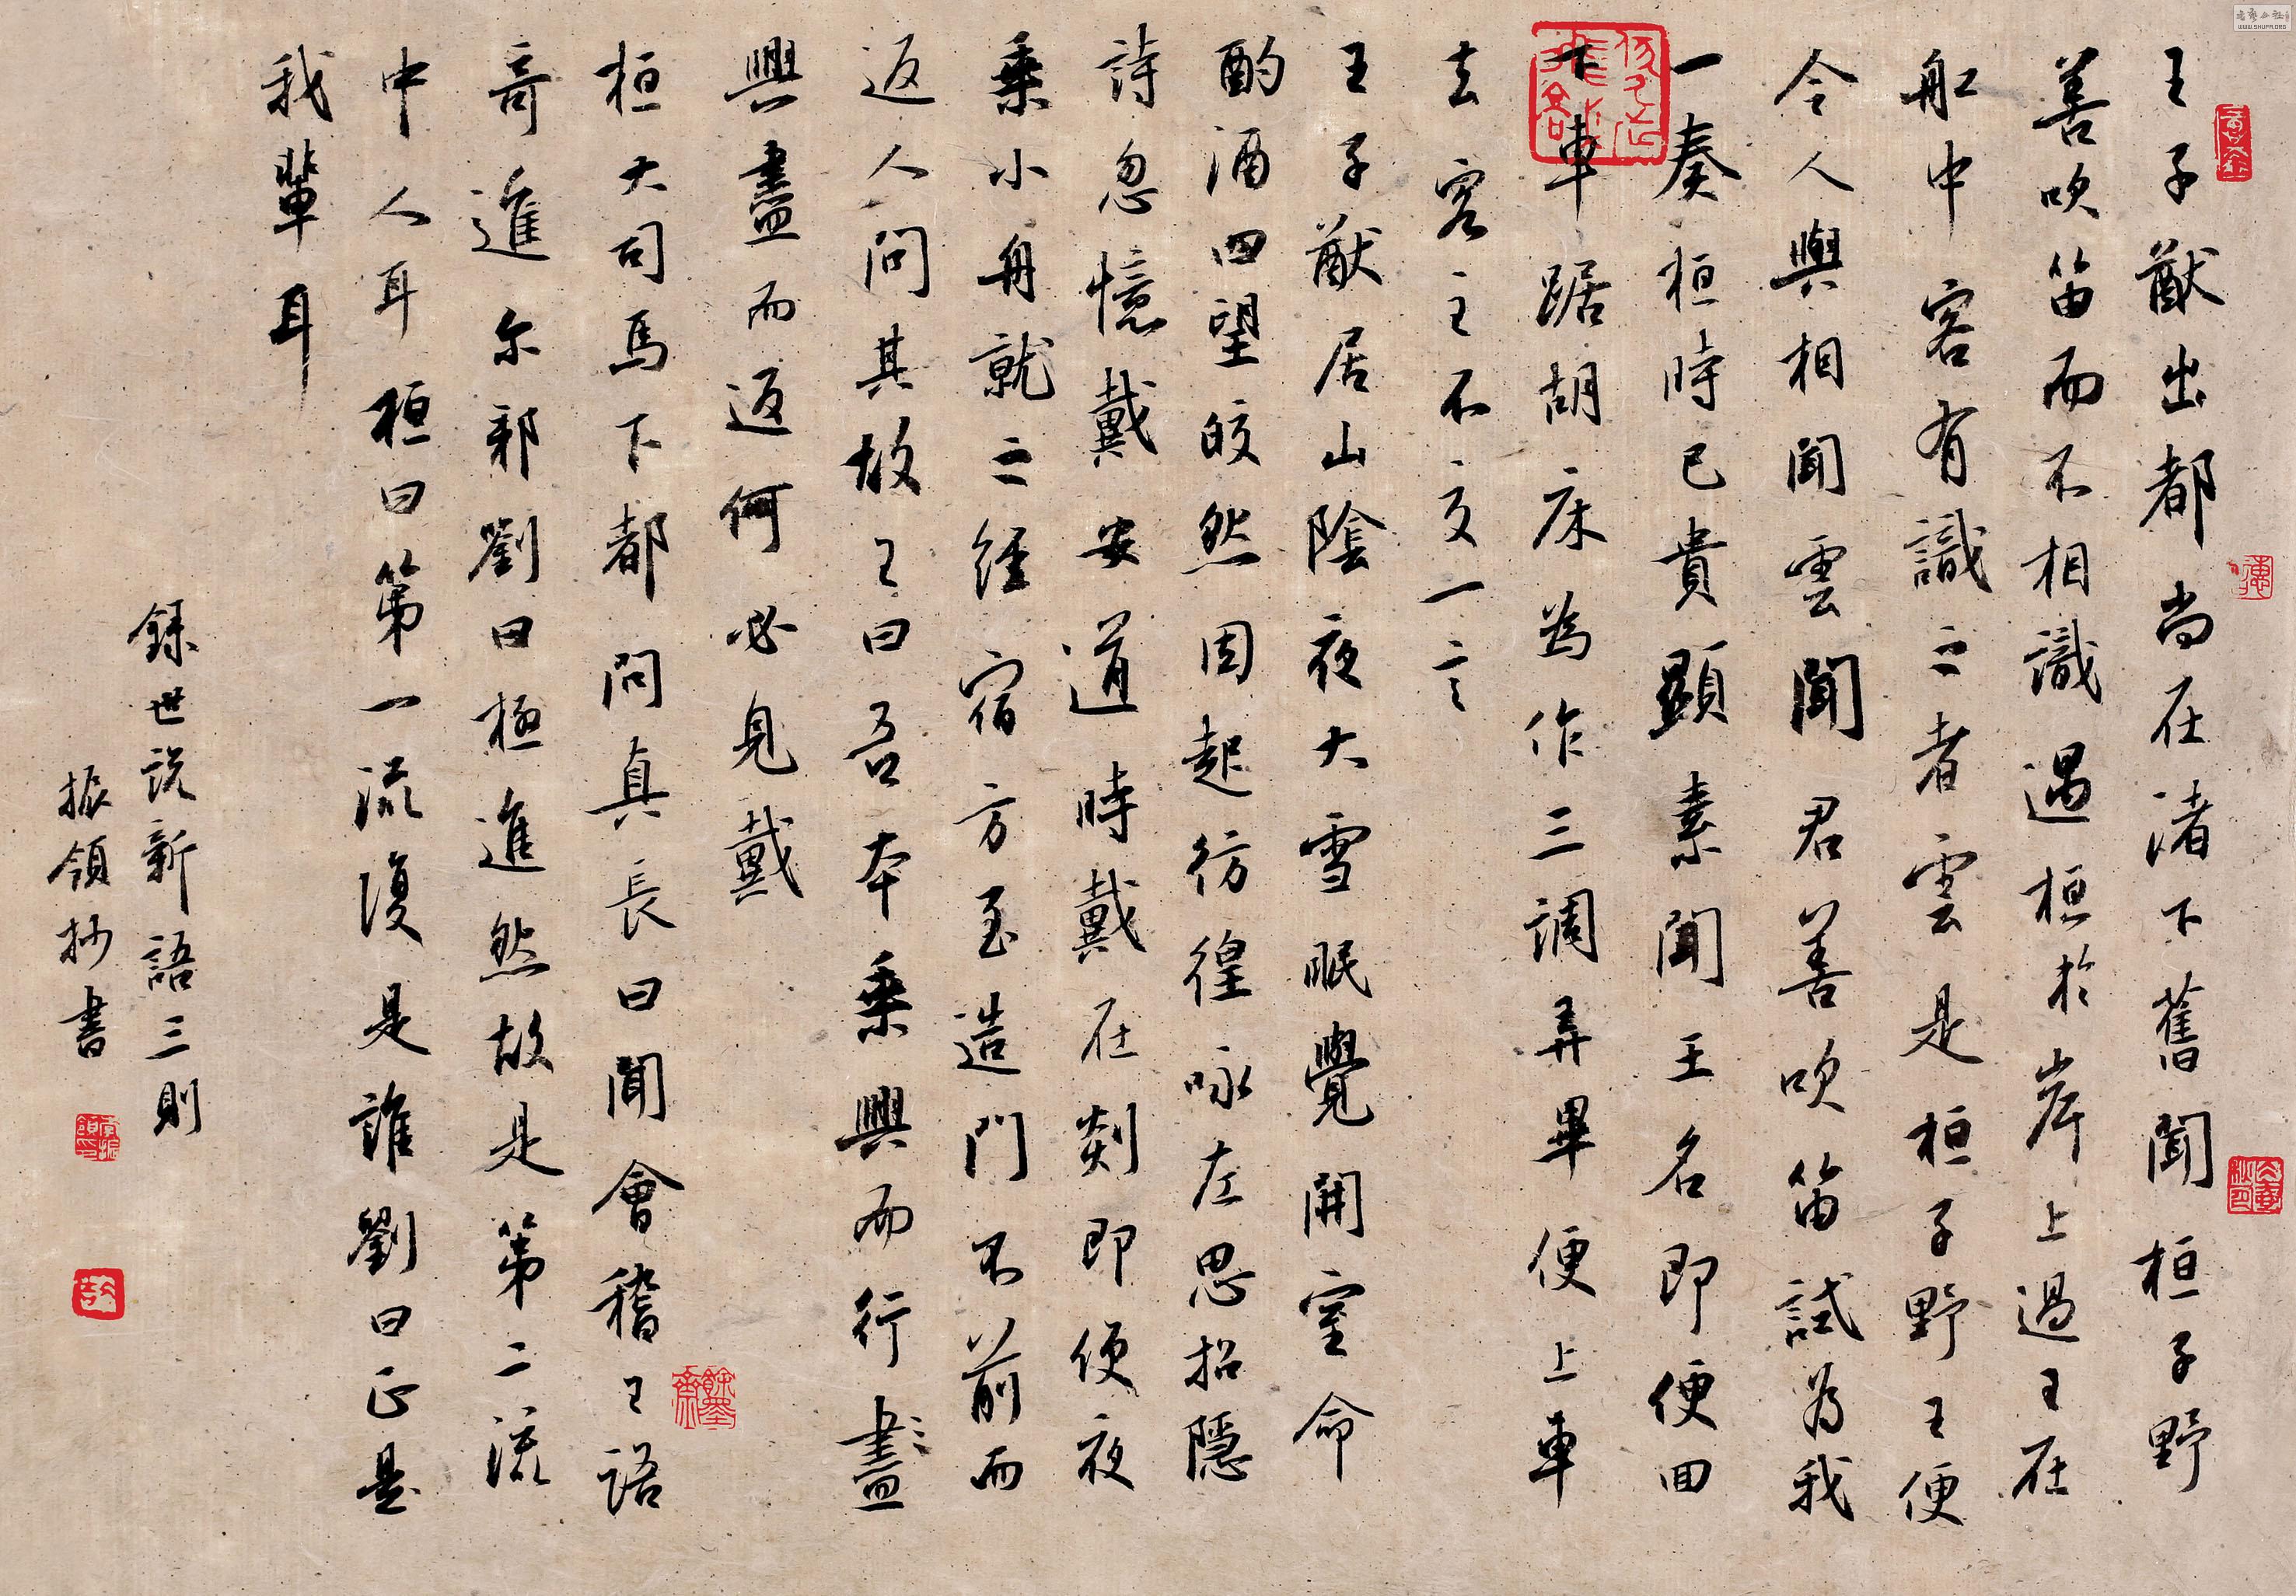 王子猷出都尚在渚下舊聞桓子野
善吹笛而不相識遇桓於岸上過王在
船中客有識之者雲是桓子野王便
令人與相聞雲聞君善吹笛試為我
一奏桓時已貴顯素聞王名即便回
下車踞胡床為作三調弄畢便上車
去客主不交一言
王子猷居山陰夜大雪眠覺開室命
酌酒四望皎然因起彷徨咏左思招隱
詩忽憶戴安道時戴在剡即便夜
乘小舟就之經宿方至造門不前而
返人問其故王曰吾本乘興而行盡
興盡而返何必見戴
桓大司馬下都問真長曰聞會稽王語
奇進尔邪劉曰極進然故是第二流
中人耳桓曰第一流復是誰劉曰正是
我輩耳
錄世説新語三則
振領抄書
WWW.SHUFA.ORG